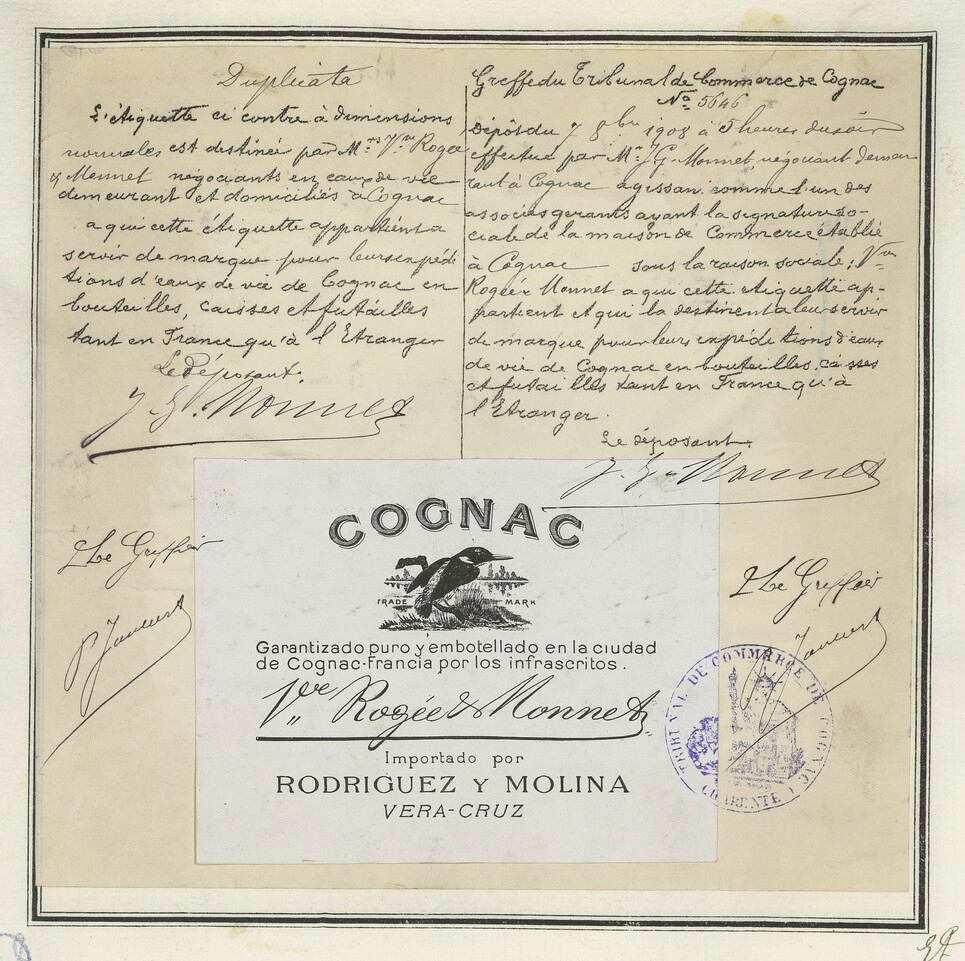 Duplicata
L'étiquette ci contre à dimensions
normales est destinée par Mrs Vve Rogée
& Monnet négociants en eaux de vie
demeurant et domiciliés à Cognac
a qui cette étiquette appartient a
servir de marque pour leurs expédi
tions d'eaux de vie de Cognac en
bouteilles, caisses et futailles
tant en France qu'à l'Etranger
Le déposant.
J. G. Monnet
Greffe du Tribunal de Commerce de Cognac
No 5646
Dépôt du 7 8bre 1908 à 5 heures du soir
effectué par Mr J. G. Monnet négociant demeu
rant à Cognac agissan comme l'un des
associés gerants ayant la signature so-
ciale de la maison de Commerce établie
à Cognac sous la raison sociale; Vve
Rogée & Monnet a qui cette etiquette ap-
partient et qui la destinent a leur servir
de marque pour leurs expéditions d'eaux
de vie de Cognac en bouteilles, caisses
et futailles tant en France qu'à
l'Etranger.
Le déposant.
J. G. Monnet
Le Greffier
Le Greffier
COGNAC
TRADE MARK
Garantizado puro y embotellado en la ciudad
de Cognac-Francia por los infrascritos.
Vve Rogée & Monnet
Importado por
RODRIGUEZ Y MOLINA
VERA-CRUZ
TRIBUNAL DE COMMERCE DE COGNAC
CHARENTE